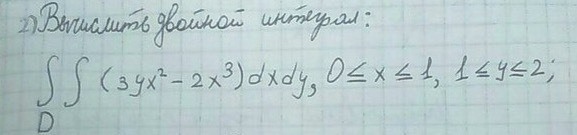 2) Вычислить двойной интеграл:
∫∫ (3yx² - 2x³)dxdy, 0≤x≤1, 1≤y≤2;
D